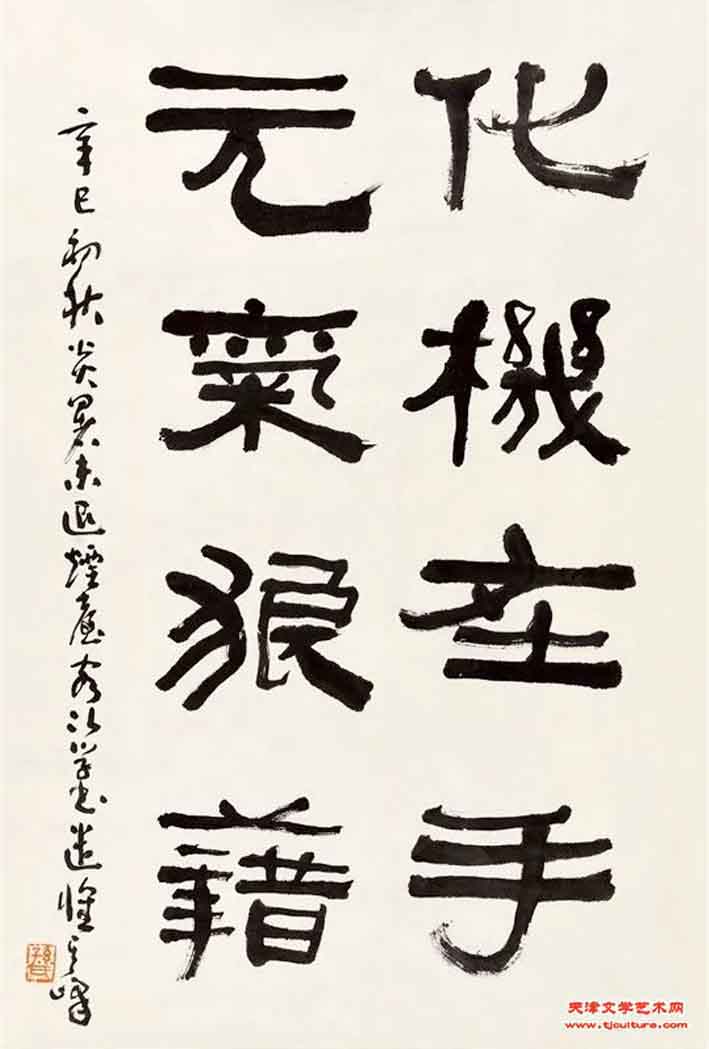 化機在手
元氣狼藉
辛巳初秋炎暑未退煙意客次學書遣懷其峰
天津文学艺术网
www.tjculture.com